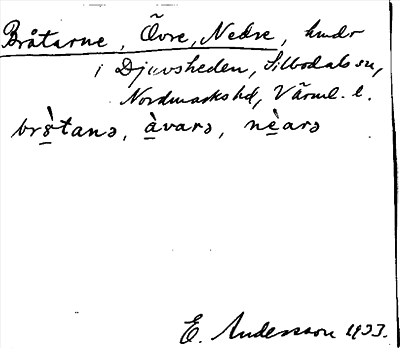 Bråtarne, Övre, Nedre, hmdr
i Djuvsheden, Silbodals sn,
Nordmarks hd, Värml. l.
brǻ̀tanə, àvarə, nèarə
E. Andersson 1933.